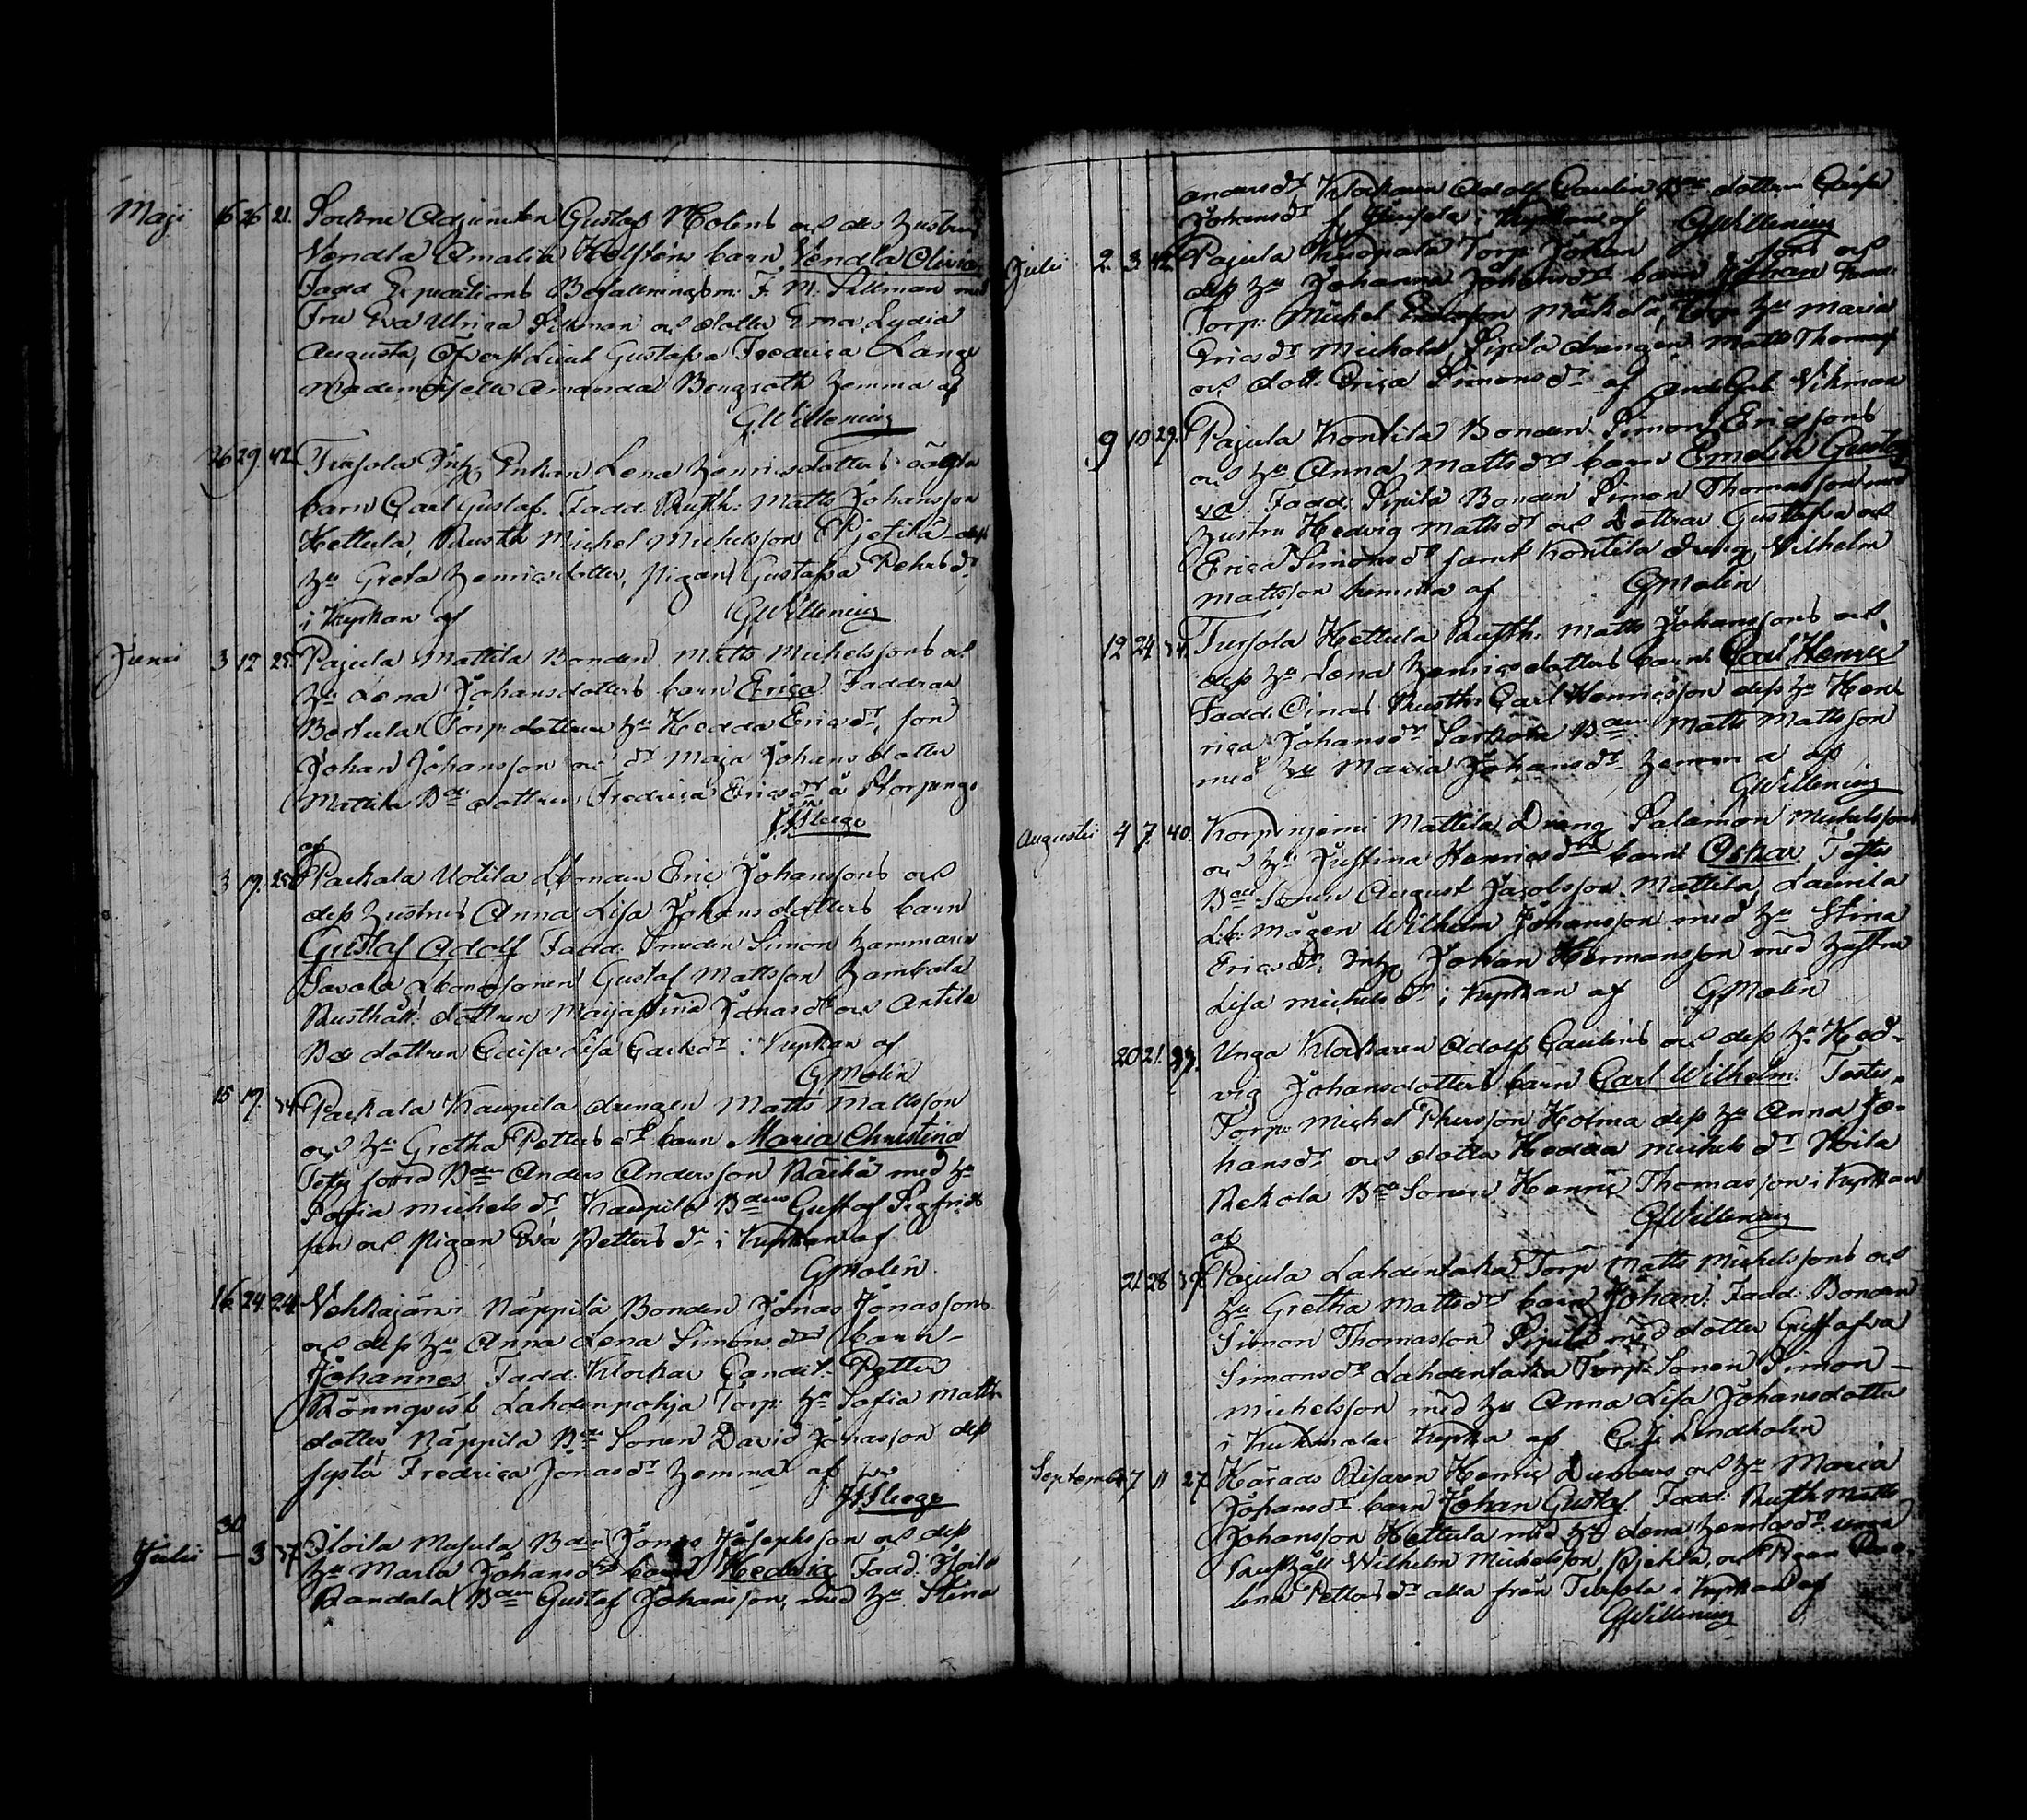 Maji 16 26 21. Sockne Adjuncten Gustaf Molins och des hustrus
Vendla Amalia Holsténs barn Vendla Olivia
Fadd Expeditions Befallningsm: F. M. Sillman med
Fru Eva Ulrica Sillman och dotter Ema Lydia
Augusta, Öfverst Lieut Gustafva Fredrica Lange
Mademoiselle Amanda Bergroth hemma af
G Willenius
26 29 42 Tursola Inh. Enkan Lena Henricsdotters oägta
barn Carl Gustaf. Fadd. Rusth: Matts Johansson
Hettula, Rusth Michel Michelsson Pjetilä dess
hu Greta Henricsdotter, Pigan Gustafva Pehrsdr
i Kyrkan af G Willenius
Junii 3 12 25. Pajula Mattila Bonden Matts Michelssons och
hu Lena Johansdotters barn Erica Faddrar
Bertula Torp dottren hu Hedda Ericsdr, son
Johan Johansson och dr Maja Johansdotter
Mattila Bde dottren Fredrica Ericsdr å Storpengo
af
3 19. 25 Packala Uotila Lbonden Eric Johanssons och
dess hustrus Anna Lisa Johansdotters barn
Gustaf Adolf Fadd. Smeden Simon Hammaren
Savola Lbondsonen Gustaf Mattsson Hambala
Rusthåll. dottren Maijastina Jonasdr och Antila
Bde dottren Caisa Lisa Carlsdr i Kyrkan af
G Molin
15 17. 34 Packala Kaupila drengen Matts Mattsson
och hu Gretha Petters dr barn Maria Christina
Testes förra Bden Anders Andersson Räikä med hu
Sofia Michelsdr Kaupila Bdens Gustaf Sigfrids
son och Pigan Eva Petters dr i Kyrkan af
G Molin.
16. 24. 24. Vehkajärvi Näppilä Bonden Jonas Jonassons
och dess hu Anna Lena Simons drs barn
Johannes Fadd. Klockar Candid. Petter
Rönnqvist Lahdenpohja Torp. hu Sofia Matts
dotter Näppilä Bde Sonen David Jonasson dess
syster Fredrica Jonasdr hemma af
30
Julii — 3 37. Äloila Musula Bden Jonas Josephsson och dess
hu Maria Johansdrs barn Hedvig Fadd.
Randala Bden Gustaf Johansson, med hu Stina
andersdr Klockaren Adolf Paulin Bde dottren Caisa
Johansdr i Kyrkan af G Willenius
Julii 2. 3 42. Pajula Kuopala Torp Johan sons och
dess hu Johanna Johansdrs barn Johan Fadd.
Torp: Michel Ericsson Mäkelä, Torp: hu Maria
Ericsdr Michola, Sipilä drengen Matts Thomass
och dott: Erica Simonsdr af Vikman
9 10 29. Pajula Kontila Bonden Simon Ericssons
och hu Anna Matts drs barn Emelia Gustaf
va. Fadd: Sipilä Bonden Simon Thomasson med
hustru Hedvig Mattsdr och Dottrar Gustafva och
Erica Simonsdr samt Kontila dreng Vilhelm
Mattsson hemma af G Molin
12 24 34. Tursola Hettula Rusth: Matts Johanssons och
dess hu Lena Henricsdotters barn Carl Henric
Fadd. Rusth: Carl Henricsson dess hu Hen
rica Johansdr Sarkola Bden Matts Mattsson
med hu Maria Johansdr hemma af
G Willenius
Augusti 4 7. 40. Mattila Dreng Salamon Michelssons
och hu Justina Henricsdrs barn Oskar Testes
Bde Sonen August Jacobsson Mattila, Laurila
Lb: Mågen Wilhelm Johansson med hu Stina
Ericsdr. Inh. Johan Hermansson med hustru
Lisa Michelsdr i Kyrkan af G Molin
20 21. 39. Unga Klockaren Adolf Paulins och dess hu Hed-
vig Johansdotters barn Carl Wilhelm. Testes.
Torp: Michel Phersson Holma dess hu Anna Jo-
hansdr och dotter Hedda Michels dr
Rekola Bde Sonen Henric Thomasson i Kyrkan
af G Willenius
21 28 37. Pajula Lahdentaka Torp Matts Michelssons och
hu Gretha Mattsdrs barn Johan. Fadd. Bonden
Simon Thomasson Sipilä med dotter Gustafva
Simonsdr Lahdentaka Torp: Sonen Simon —
Michelsson med hu Anna Lisa Johansdotter
i Kuhmalax Kyrka af Lindholm
September 7 11 27 Härads Visaren Henric och hu Maria
Johansdrs barn Johan Gustaf. Fadd: Rusth Matts
Johansson Hettula med hu Lena Henricsdr unga
Rusthåll Wilhelm Michelsson, och Pigan
lena Pettersdr alla från Tursola i Kyrkan af
G Willenius